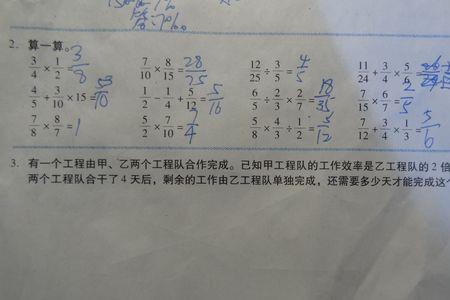 2. 算一算。
3/4 × 1/2 = 3/8 7/10 × 8/15 = 28/75 12/25 ÷ 3/5 = 4/5 11/24 + 3/4 × 5/6
4/5 + 3/10 × 15 = 53/10 1/2 - 1/4 + 5/12 = 5/16 6/5 ÷ 2/3 × 2/7 = 18/35 7/15 × 6/7 = 2/5
7/8 × 8/7 = 1 5/2 × 7/10 = 7/4 5/8 × 4/3 ÷ 1/2 = 5/12 7/2 + 3/4 ÷
3. 有一个工程由甲、乙两个工程队合作完成。已知甲工程队的工作效率是乙工程队的 2 倍
两个工程队合干了 4 天后，剩余的工作由乙工程队单独完成，还需要多少天才能完成这